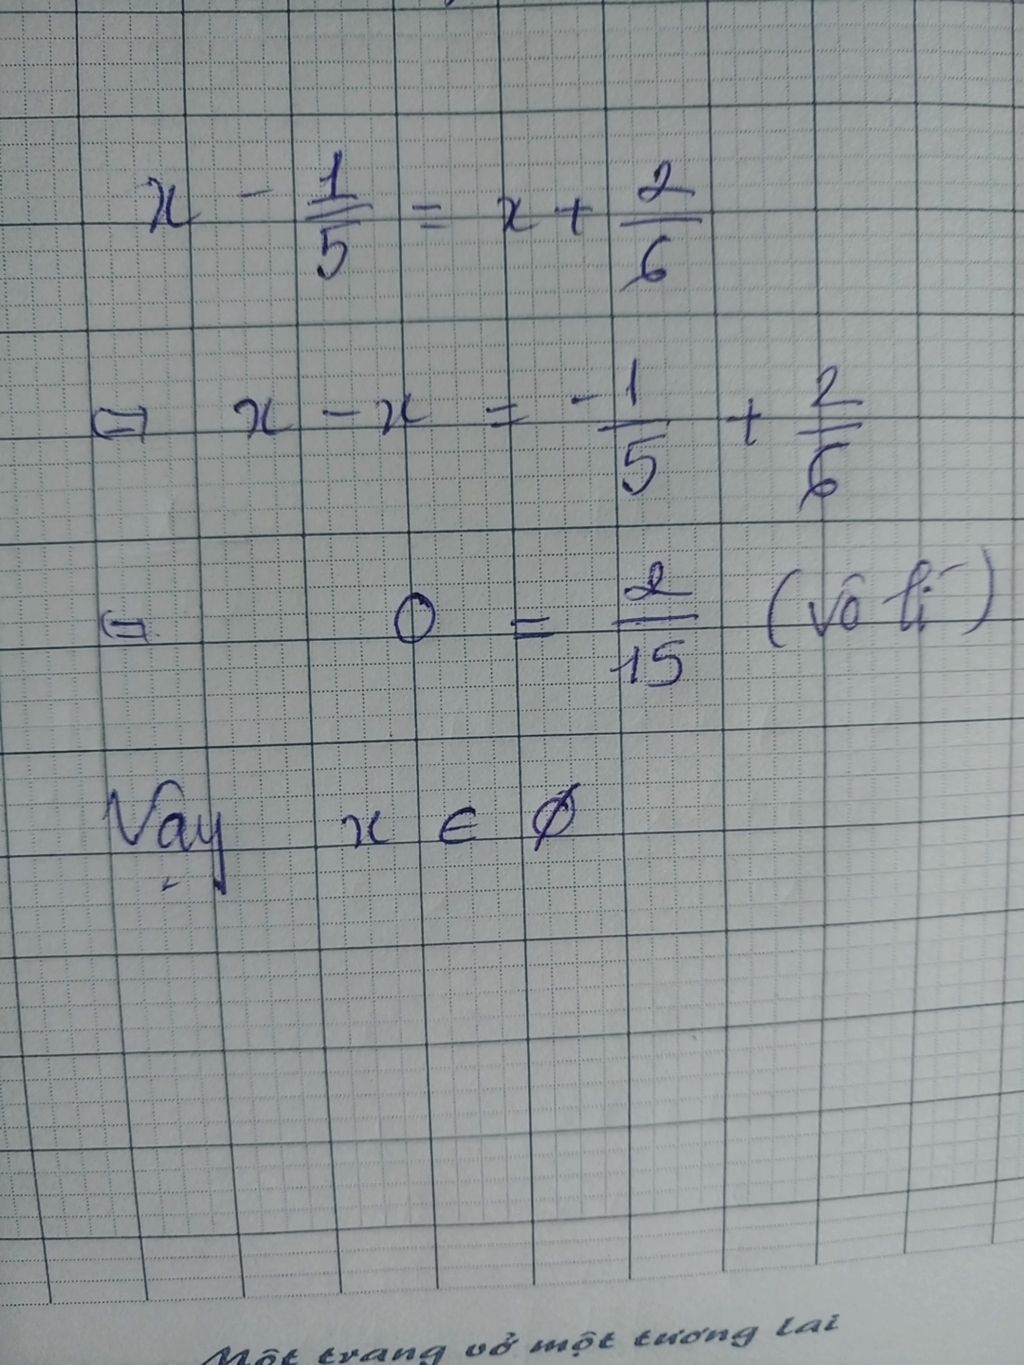 x - 1/5 = x + 2/6
⇔ x - x = -1/5 + 2/6
⇔ 0 = 2/15 (vô lí)
Vậy x ∈ ∅
Một trang vở một tương lai